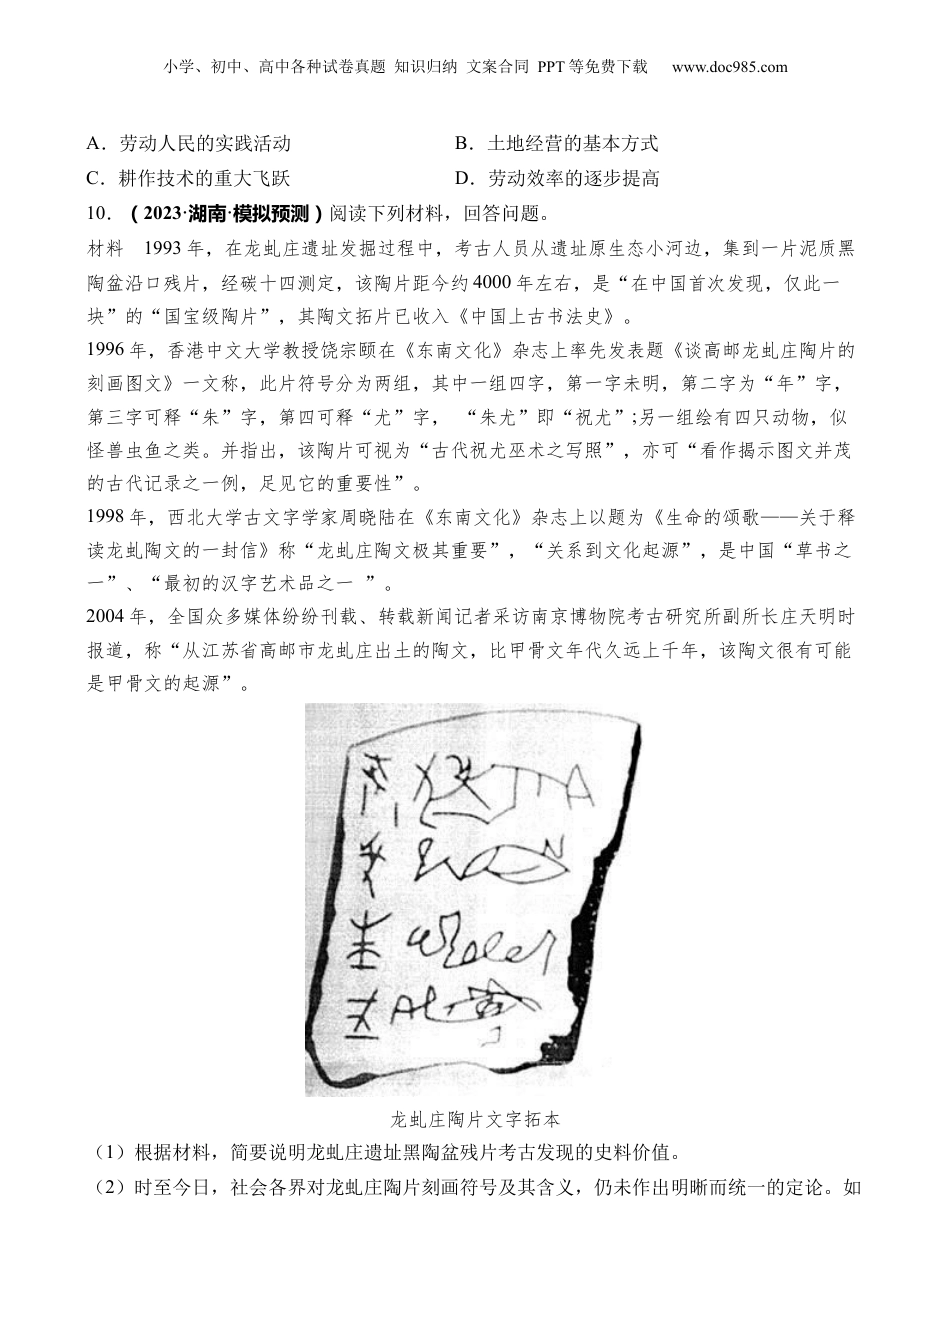 小学、初中、高中各种试卷真题 知识归纳 文案合同 PPT等免费下载 www.doc985.com
A．劳动人民的实践活动 B．土地经营的基本方式
C．耕作技术的重大飞跃 D．劳动效率的逐步提高
10．（2023·湖南·模拟预测）阅读下列材料，回答问题。
材料 1993年，在龙虬庄遗址发掘过程中，考古人员从遗址原生态小河边，集到一片泥质黑
陶盆沿口残片，经碳十四测定，该陶片距今约4000年左右，是“在中国首次发现，仅此一
块”的“国宝级陶片”，其陶文拓片已收入《中国上古书法史》。
1996年，香港中文大学教授饶宗颐在《东南文化》杂志上率先发表题《谈高邮龙虬庄陶片的
刻画图文》一文称，此片符号分为两组，其中一组四字，第一字未明，第二字为“年”字，
第三字可释“朱”字，第四可释“尤”字， “朱尤”即“祝尤”;另一组绘有四只动物，似
怪兽虫鱼之类。并指出，该陶片可视为“古代祝尤巫术之写照”，亦可“看作揭示图文并茂
的古代记录之一例，足见它的重要性”。
1998年，西北大学古文字学家周晓陆在《东南文化》杂志上以题为《生命的颂歌——关于释
读龙虬陶文的一封信》称“龙虬庄陶文极其重要”，“关系到文化起源”，是中国“草书之
一”、“最初的汉字艺术品之一 ”。
2004年，全国众多媒体纷纷刊载、转载新闻记者采访南京博物院考古研究所副所长庄天明时
报道，称“从江苏省高邮市龙虬庄出土的陶文，比甲骨文年代久远上千年，该陶文很有可能
是甲骨文的起源”。
龙虬庄陶片文字拓本
（1）根据材料，简要说明龙虬庄遗址黑陶盆残片考古发现的史料价值。
（2）时至今日，社会各界对龙虬庄陶片刻画符号及其含义，仍未作出明晰而统一的定论。如